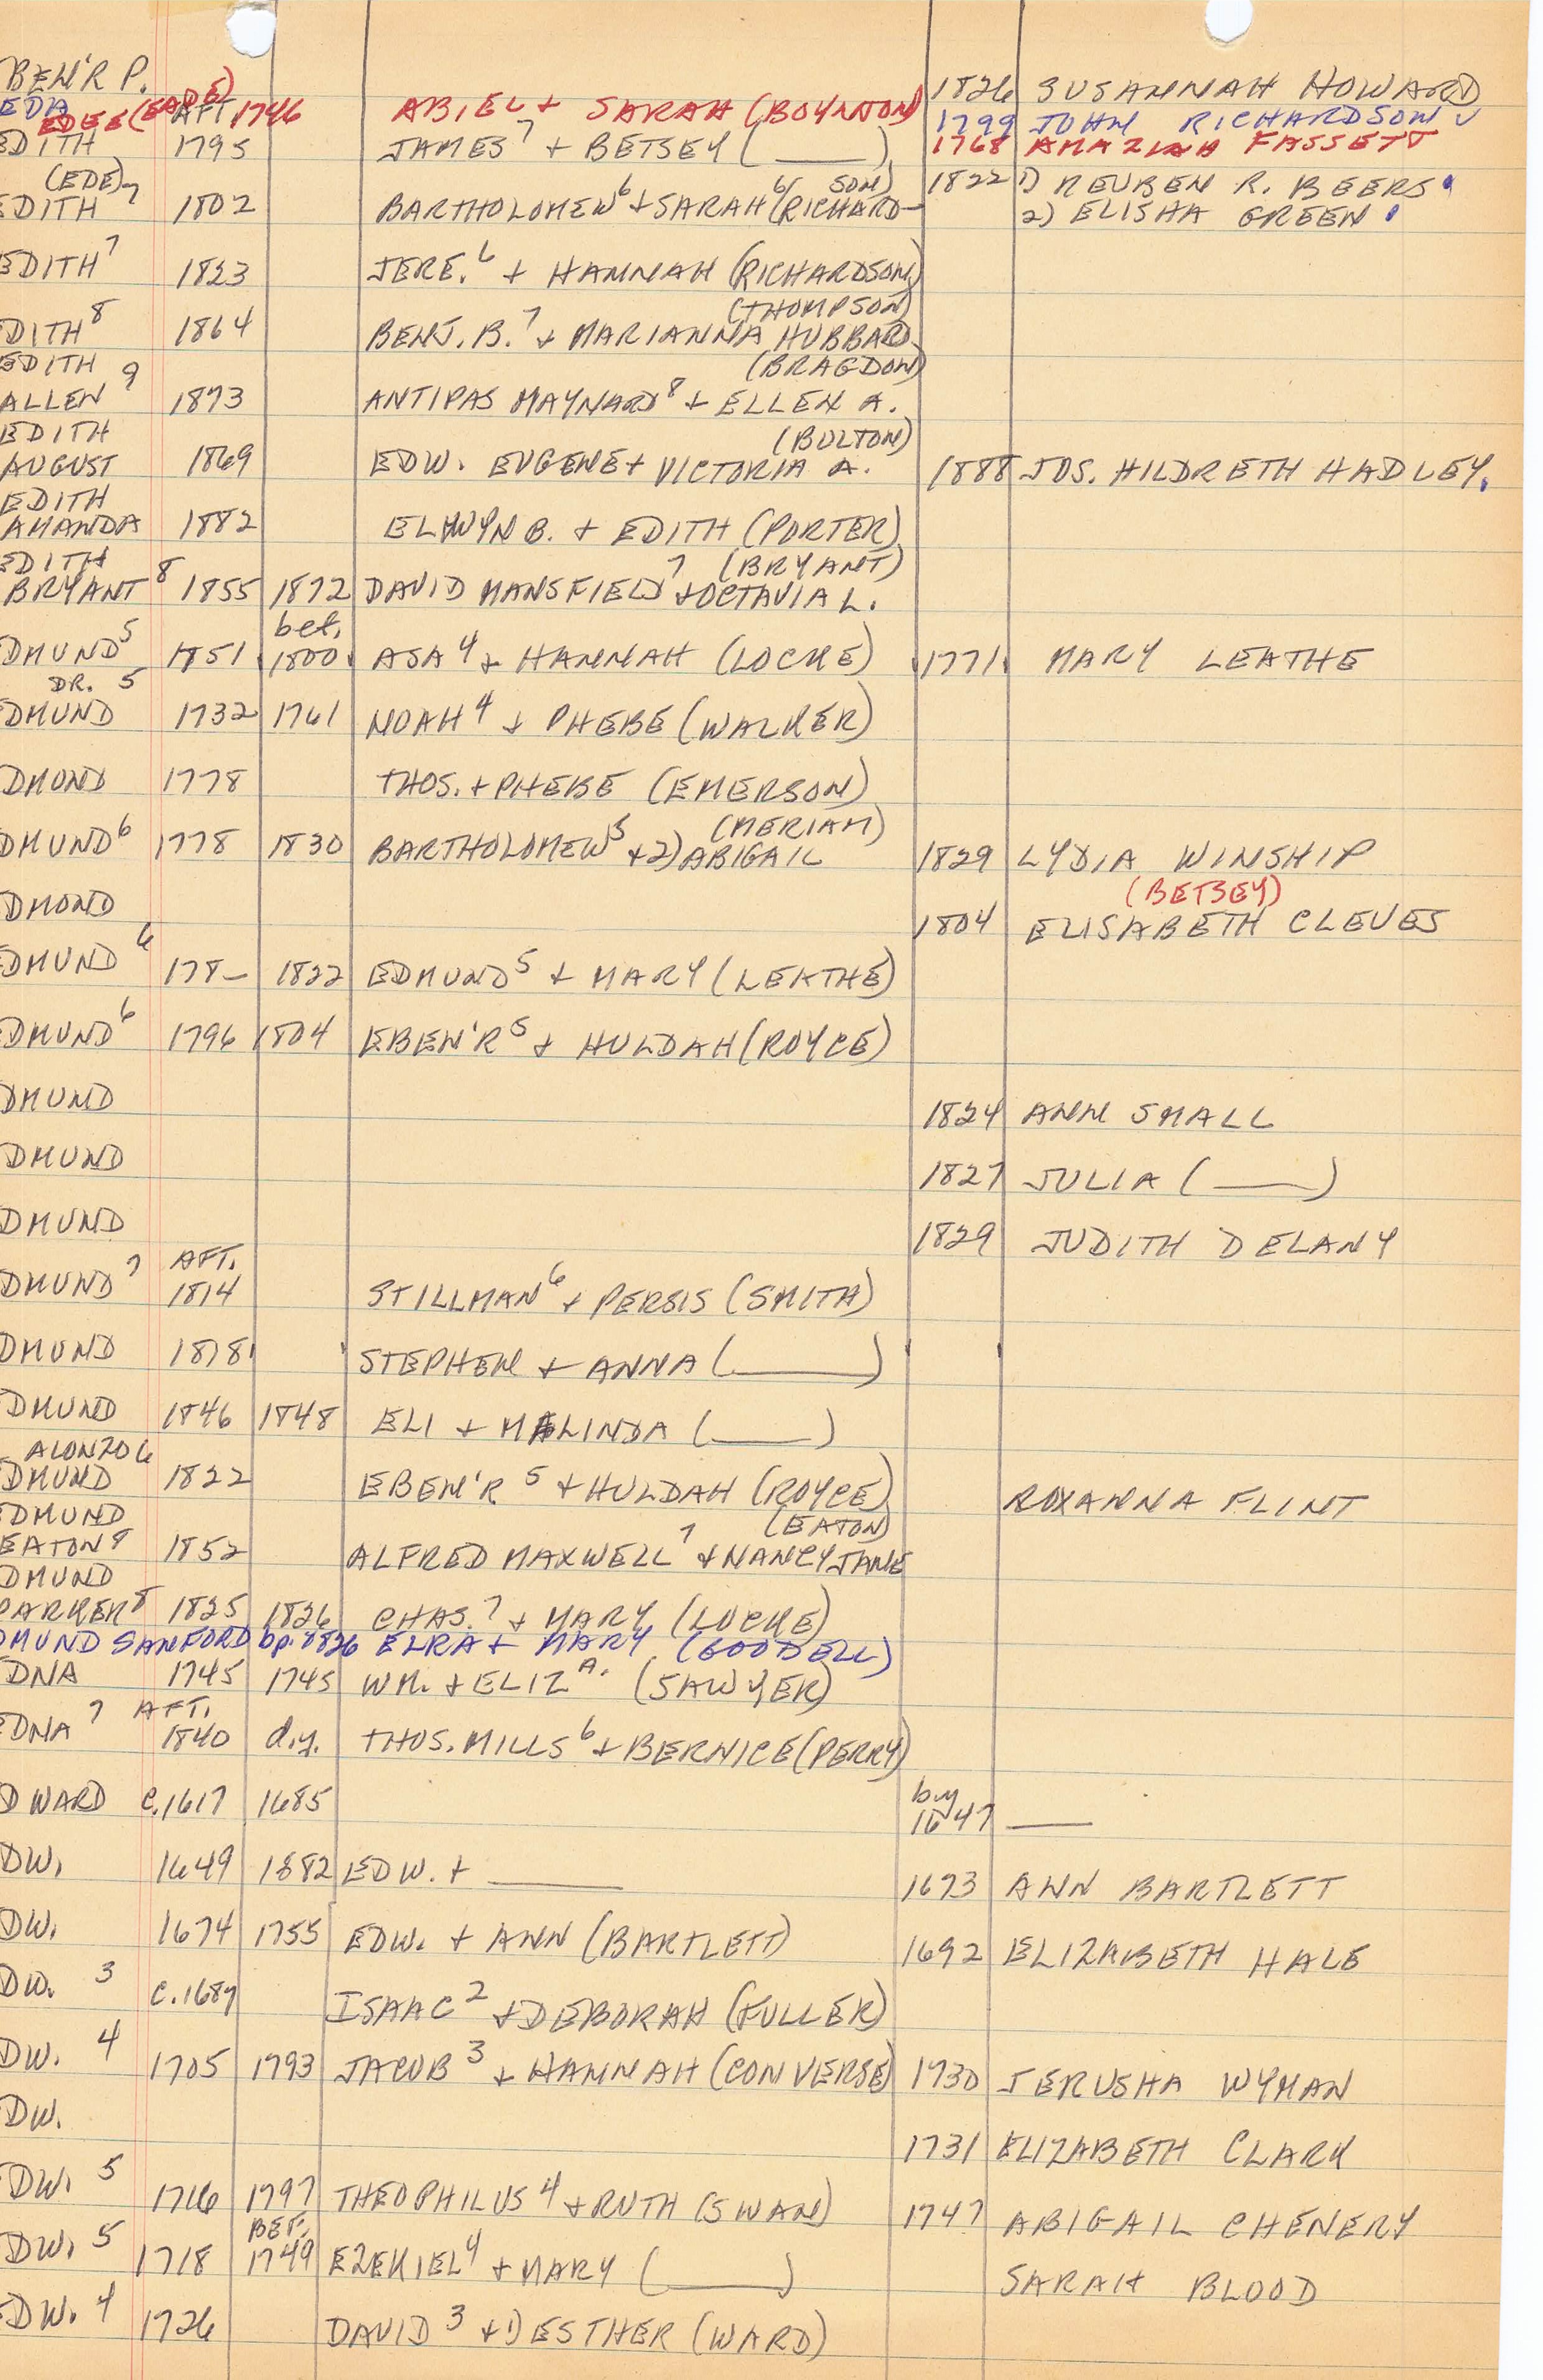 BEN'R P. 1826 SUSANNAH HOWARD
EDIA 1799 JOHN RICHARDSON
EDEE (EADE) AFT 1746 ABIEL + SARAH (BOYNTON) 1768 AMAZIAH FASSETT
EDITH 1795 JAMES 7 + BETSEY ( ____ )
(EDE)
EDITH 7 1802 BARTHOLOMEW 6 + SARAH 6 (RICHARD- SON) 1822 1) REUBEN R. BEERS
2) ELISHA GREEN
EDITH 7 1823 JERE. 6 + HANNAH (RICHARDSON)
(THOMPSON)
DITH 8 1864 BENJ. B. 7 + MARIANNA HUBBARD
EDITH (BRAGDON)
ALLEN 9 1873 ANTIPAS MAYNARD 8 + ELLEN A.
EDITH (BULTON)
AUGUST 1869 EDW. EUGENE + VICTORIA A. 1888 JOS. HILDRETH HADLEY.
EDITH
AMANDA 1882 ELWYN B. + EDITH (PORTER)
EDITH (BRYANT)
BRYANT 8 1855 1872 DAVID MANSFIELD 7 + OCTAVIA L.
bef.
DMUND 5 1851 1800 ASA 4 + HANNAH (LOCKE) 1771 MARY LEATHE
DR. 5
DMUND 1732 1761 NOAH 4 + PHEBE (WALKER)
DMOND 1778 THOS. + PHEBE (EMERSON)
(MERIAM)
DMUND 6 1778 1830 BARTHOLOMEW 5 + 2) ABIGAIL 1829 LYDIA WINSHIP
(BETSEY)
DMOND 1804 ELISABETH CLEVES
EDMUND 6 178- 1822 EDMUND 5 + MARY (LEATHE)
EDMUND 6 1796 1804 EBEN'R 5 + HULDAH (ROYCE)
DMUND 1824 ANN SMALL
DMUND 1827 JULIA ( ____ )
DMUND 1829 JUDITH DELANY
AFT.
DMUND 7 1814 STILLMAN 6 + PERSIS (SMITH)
DMUND 1878 STEPHEN + ANNA ( ____ )
DMUND 1846 1848 ELI + MALINDA ( ____ )
ALONZO 6
DMUND 1822 EBEN'R 5 + HULDAH (ROYCE) ROXANNA FLINT
EDMUND (EATON)
EATON 8 1852 ALFRED MAXWELL 7 + NANCY JANE
DMUND
PARKER 8 1825 1826 CHAS. 7 + MARY (LOCKE)
DMUND SANFORD bp. 1826 ELRA + MARY (GOODELL)
DNA 1745 1745 WM. + ELIZ A. (SAWYER)
AFT.
EDNA 7 1840 d.y. THOS. MILLS 6 + BERNICE (PERRY)
by
DWARD c.1617 1685 1647 ____
DW. 1649 1682 EDW. + ____ 1673 ANN BARTLETT
DW. 1674 1755 EDW. + ANN (BARTLETT) 1692 ELIZABETH HALE
DW. 3 c.1687 ISAAC 2 + DEBORAH (FULLER)
DW. 4 1705 1793 JACOB 3 + HANNAH (CONVERSE) 1730 JERUSHA WYMAN
DW. 1731 ELIZABETH CLARK
DW. 5 1716 1797 THEOPHILUS 4 + RUTH (SWAN) 1747 ABIGAIL CHENERY
BEF.
DW. 5 1718 1749 EZEKIEL 4 + MARY ( ____ ) SARAH BLOOD
EDW. 4 1726 DAVID 3 + 1) ESTHER (WARD)